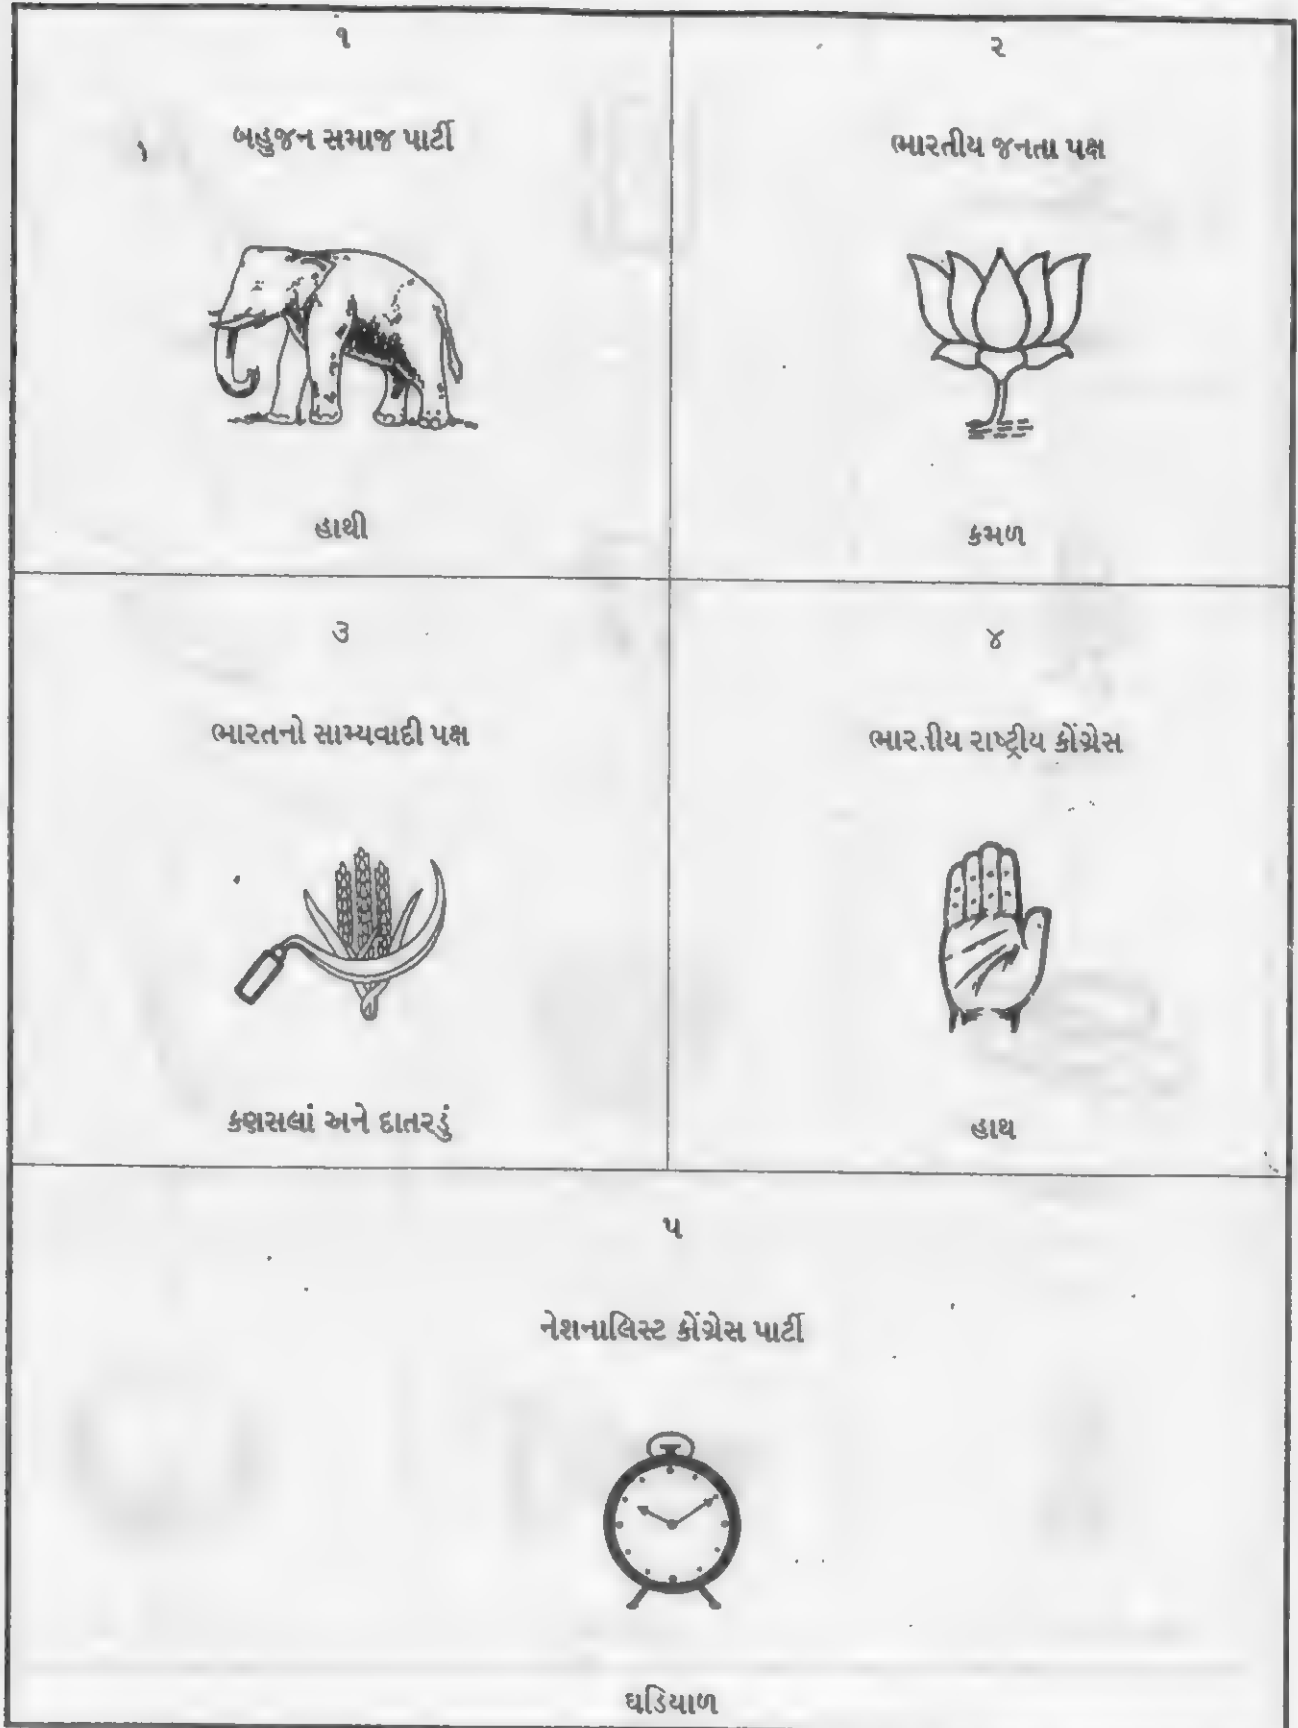 ૧
બહુજન સમાજ પાર્ટી
હાથી
૨
ભારતીય જનતા પક્ષ
કમળ
૩
ભારતનો સામ્યવાદી પક્ષ
કણસલાં અને દાતરડું
૪
ભારતીય રાષ્ટ્રીય કોંગ્રેસ
હાથ
૫
નેશનાલિસ્ટ કોંગ્રેસ પાર્ટી
ઘડિયાળ